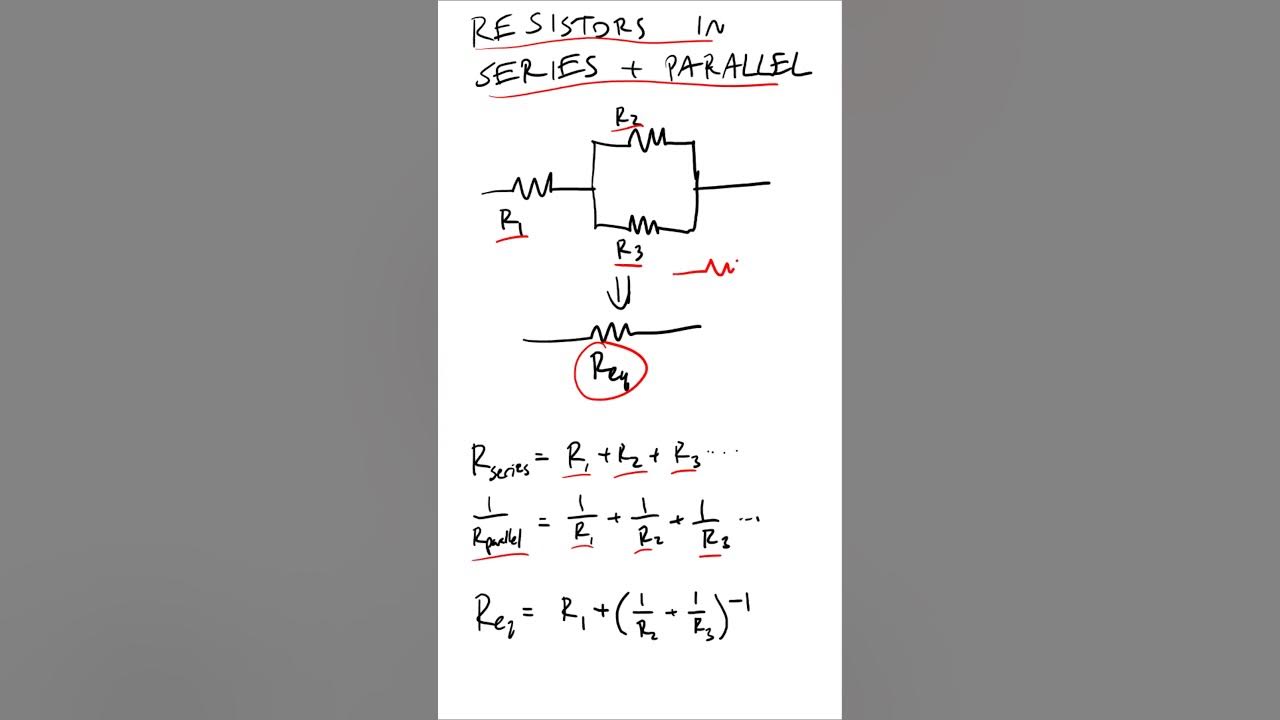 RESISTORS IN
SERIES + PARALLEL
R2
R1
R3
Req
Rseries = R1 + R2 + R3 ...
1/Rparallel = 1/R1 + 1/R2 + 1/R3 ...
Req = R1 + (1/R2 + 1/R3)^-1